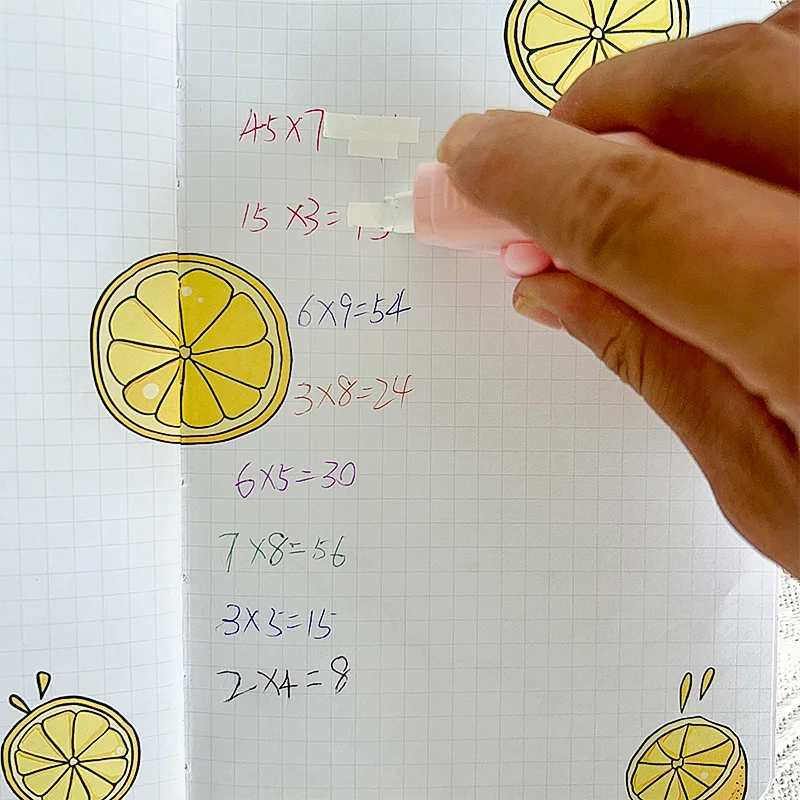 45×7
15×3=
6×9=54
3×8=24
6×5=30
7×8=56
3×5=15
2×4=8